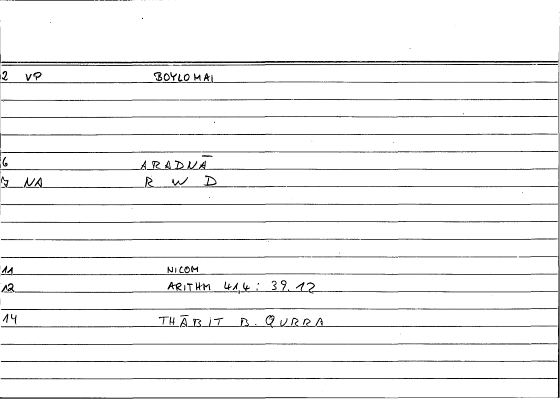 2 VP BOYLOMAI
6 ARADNĀ
7 NA R W D
11 NICOM
12 ARITHM 41,4 : 39.12
14 THĀBIT B. QURRA